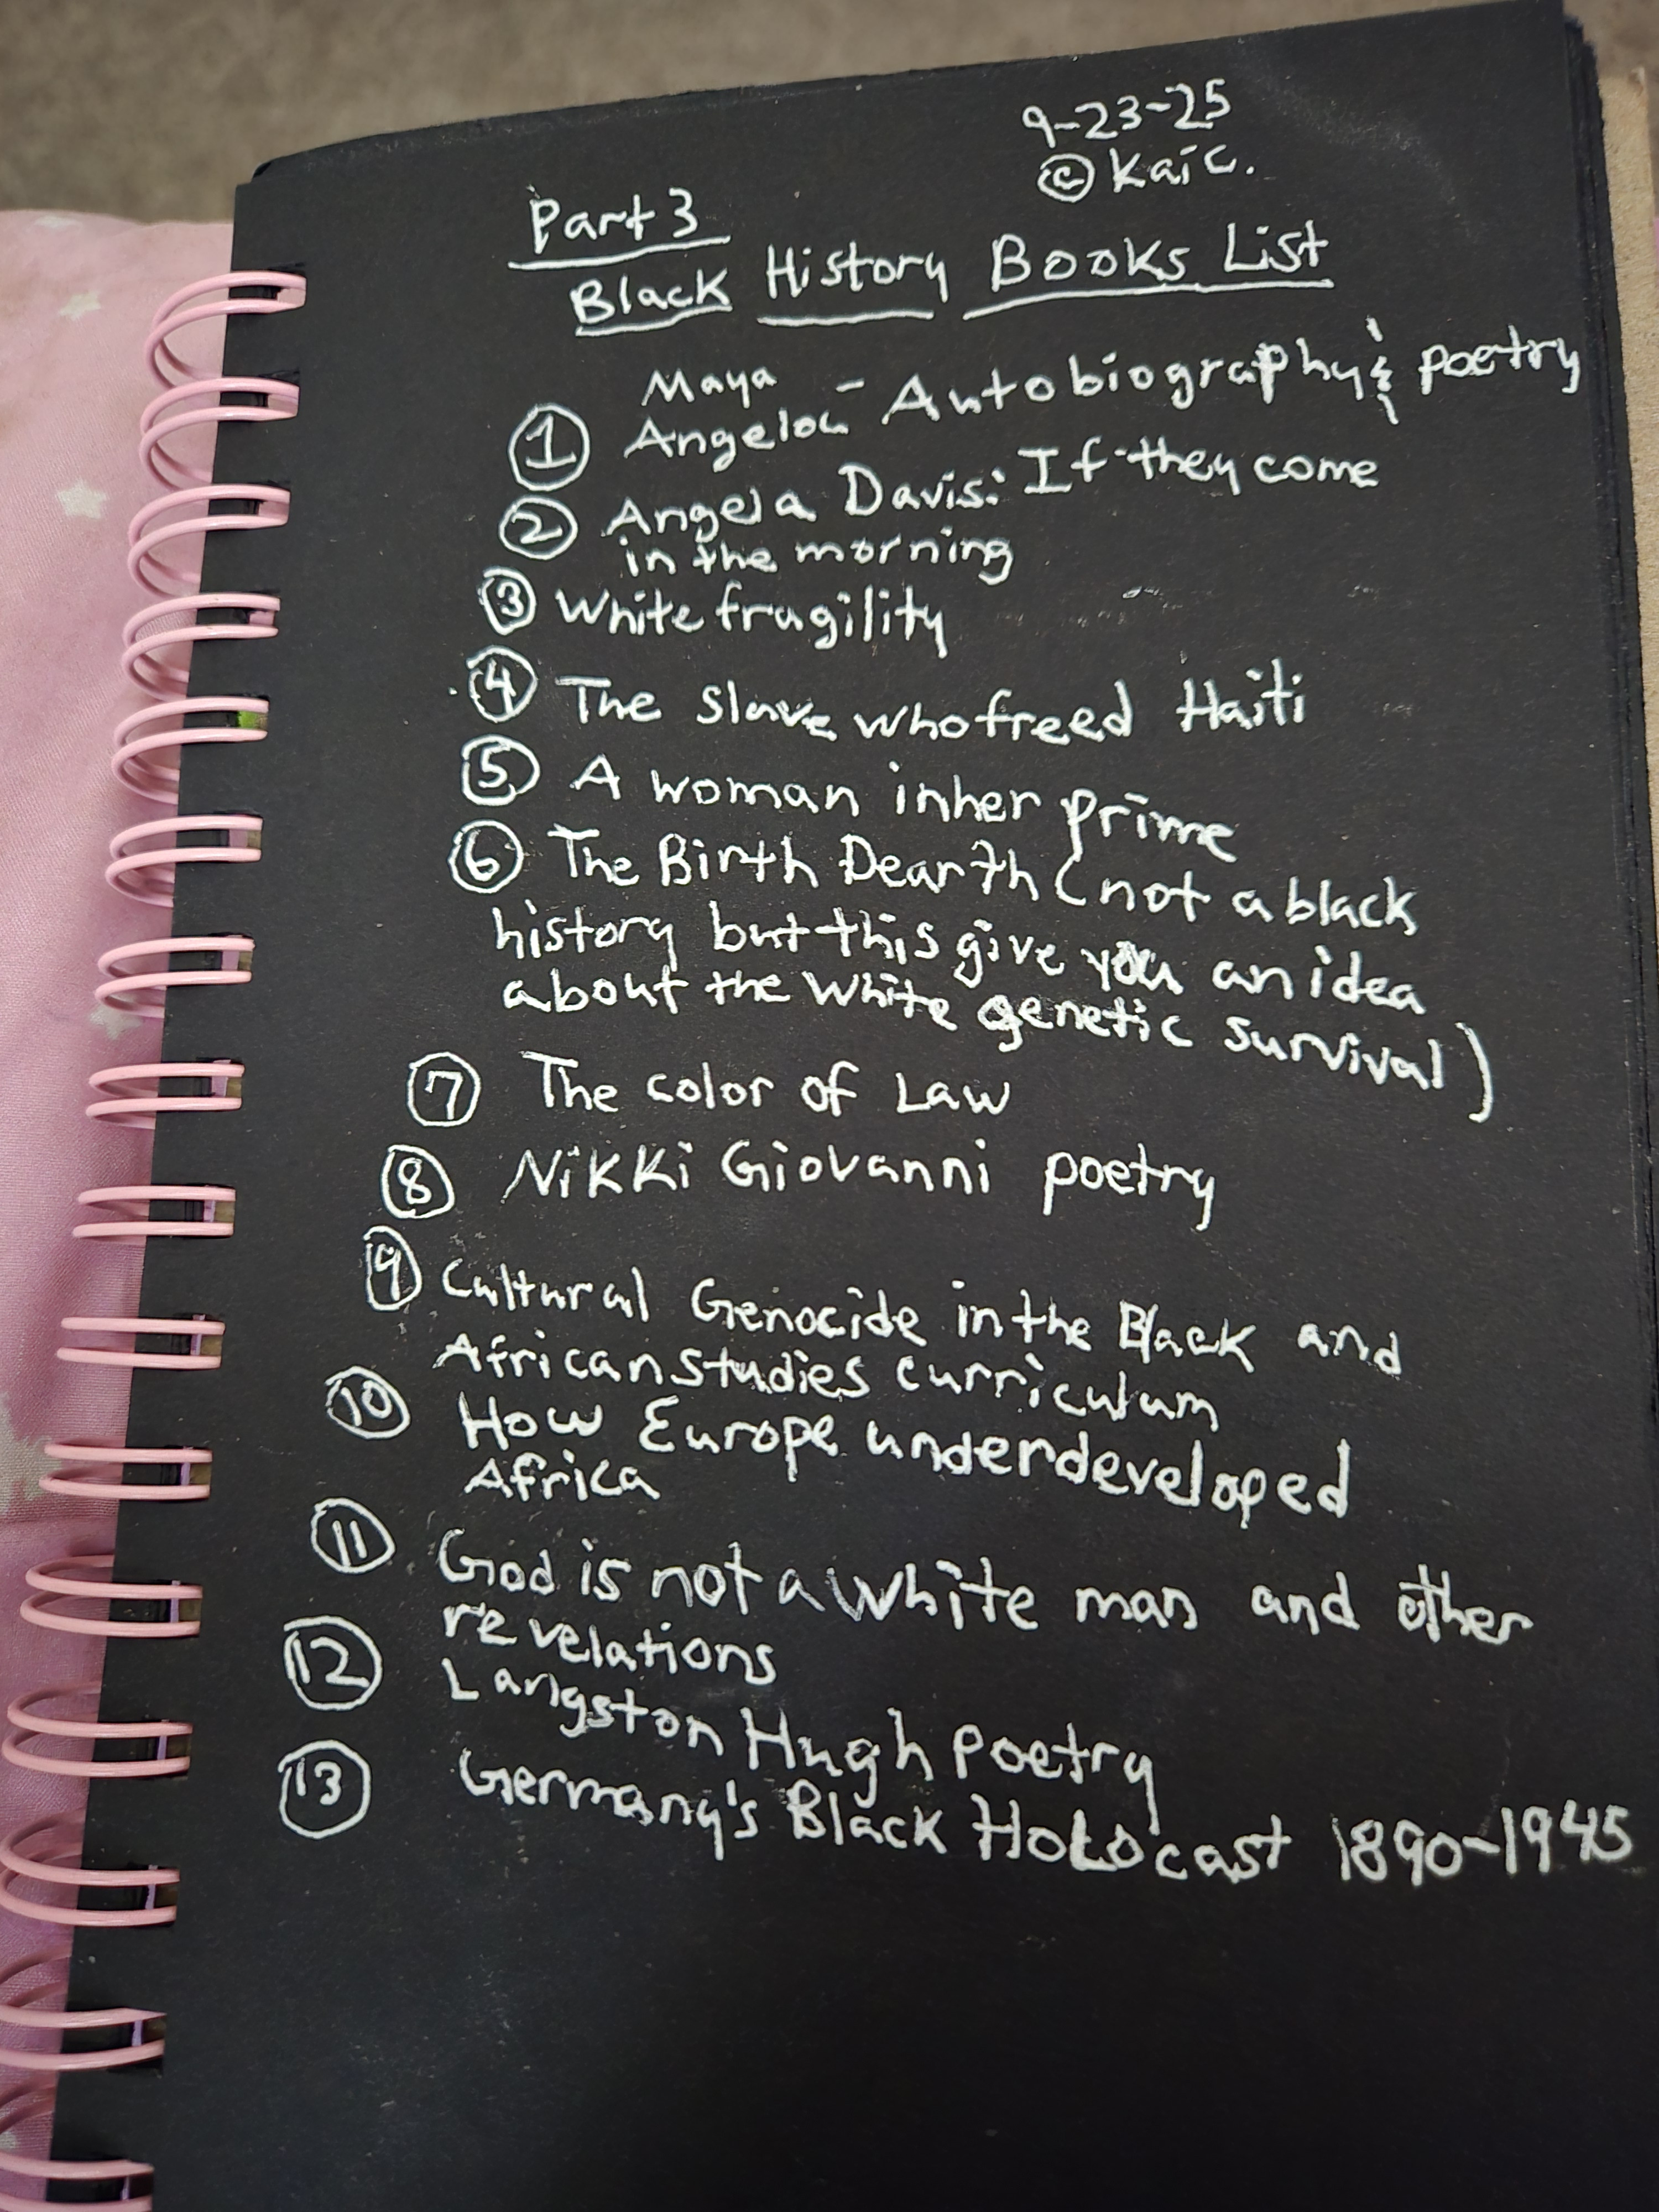 9-23-25
© Kai C.
Part 3
Black History Books List
① Maya Angelou - Autobiography & poetry
② Angela Davis: If they come
in the morning
③ White fragility
④ The slave who freed Haiti
⑤ A woman in her prime
⑥ The Birth Dearth (not a black
history but this give you an idea
about the White genetic survival)
⑦ The color of Law
⑧ Nikki Giovanni poetry
⑨ Cultural Genocide in the Black and
African studies curriculum
⑩ How Europe underdeveloped
Africa
⑪ God is not a white man and other
revelations
⑫ Langston Hugh poetry
⑬ Germany's Black Holocast 1890-1945